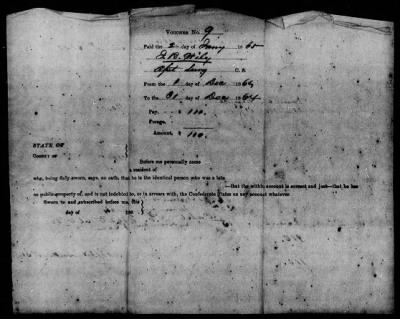 Voucher No. 9
Paid the 2 day of Jany 1865
Asst Surg C. S.
From the 1 day of Dec 1864
To the 31 day of Dec 1864
Pay, $ 110.
Forage,
Amount, $ 110.
STATE OF
COUNTY OF
Before me personally came
a resident of
who, being duly sworn, says, on oath, that he is the identical person who was a late
—that the within account is correct and just—that he has
no public property of, and is not indebted to, or in arrears with, the Confederate States on any account whatever
Sworn to and subscribed before me, this
day of 186